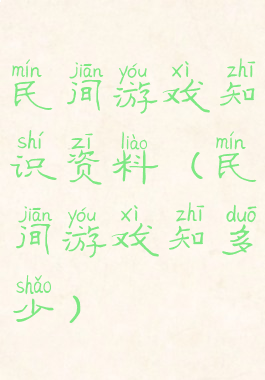 mín jiān yóu xì zhī
民间游戏知
shí zī liào mín
识资料（民
jiān yóu xì zhī duō
间游戏知多
shǎo
少）